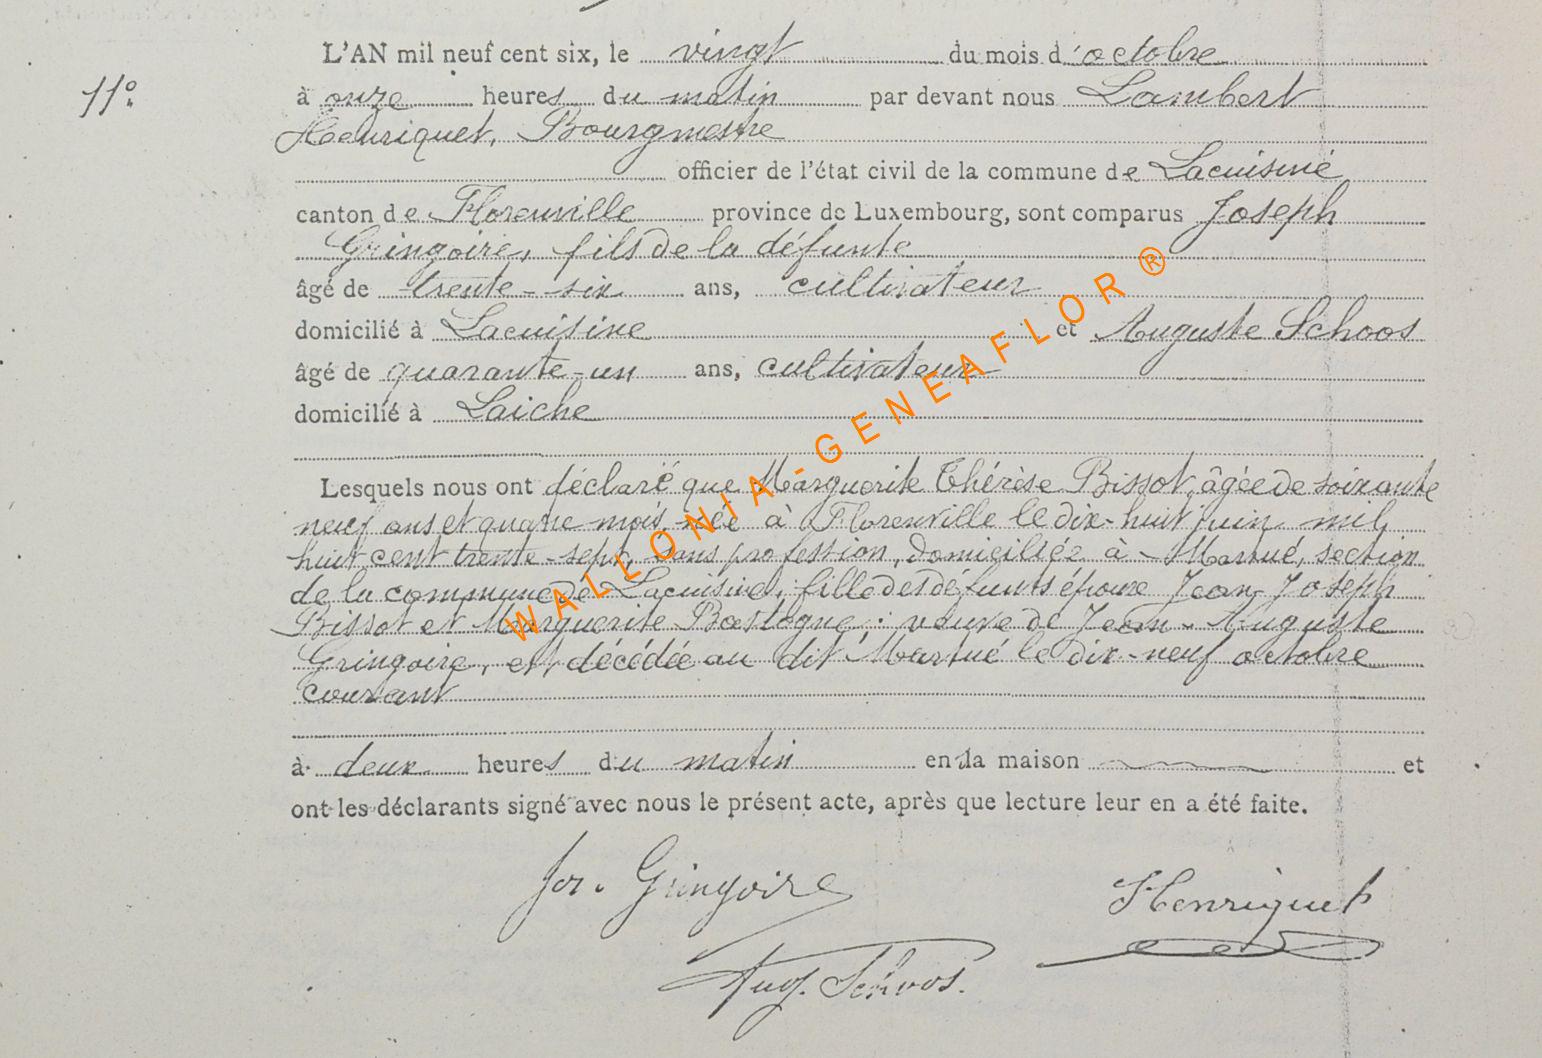 L'AN mil neuf cent six, le vingt du mois d'octobre
11°.
à onze heures du matin par devant nous Lambert
Henriquet, Bourgmestre
officier de l'état civil de la commune de Lacuisine
canton de Florenville province de Luxembourg, sont comparus Joseph
Gringoire, fils de la défunte
âgé de trente-six ans, cultivateur
domicilié à Lacuisine et Auguste Schoos
âgé de quarante-un ans, cultivateur
domicilié à Laiche
Lesquels nous ont déclaré que Marguerite Thérèse Bissot, âgée de soixante
neuf ans et quatre mois, née à Florenville le dix-huit juin mil
huit cent trente-sept, sans profession, domiciliée à Martué, section
de la commune de Lacuisine, fille des défunts époux Jean Joseph
Bissot et Marguerite Bastogne; veuve de Jean-Auguste
Gringoire, est décédée au dit Martué le dix-neuf octobre
courant
à deux heures du matin en la maison et
ont les déclarants signé avec nous le présent acte, après que lecture leur en a été faite.
Jos. Gringoire
Henriquet
Aug. Schoos.
WALLONIA-GENEAFLOR ®